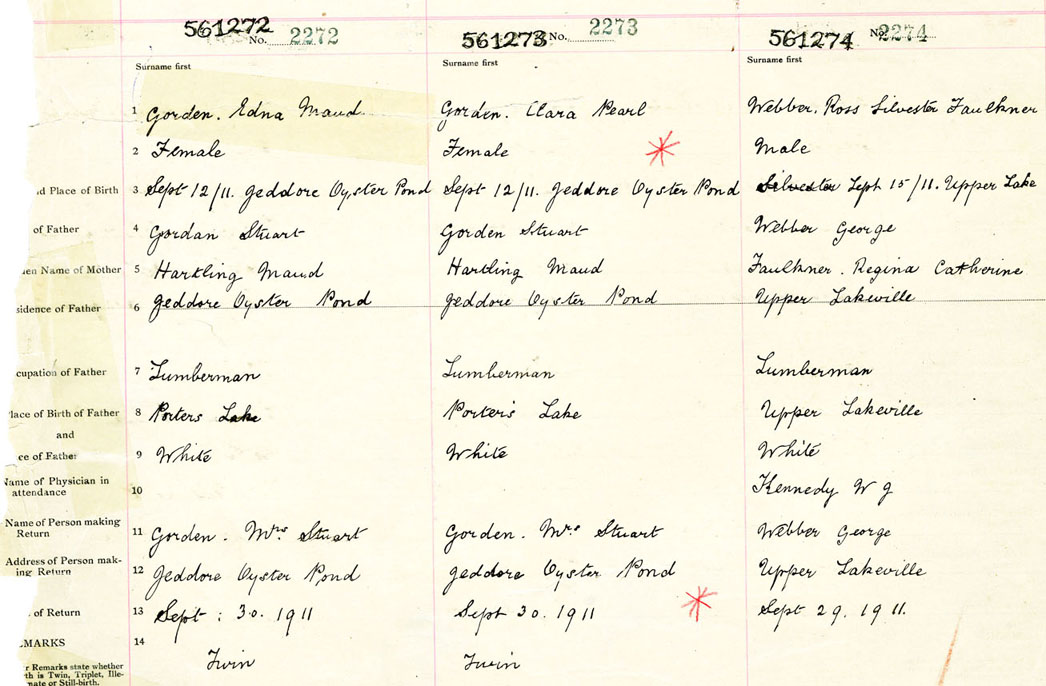 561272 No. 2272 561273 No. 2273 561274 No. 2274
Surname first Surname first Surname first
1 Gorden. Edna Maud Gorden. Clara Pearl Webber. Ross Silvester Faulkner
2 Female Female Male
d Place of Birth 3 Sept 12/11. Geddore Oyster Pond Sept 12/11. Geddore Oyster Pond Silvester Sept 15/11. Upper Lake
of Father 4 Gordan Stuart Gorden Stuart Webber George
en Name of Mother 5 Hartling Maud Hartling Maud Faulkner. Regina Catherine
sidence of Father 6 Geddore Oyster Pond Geddore Oyster Pond Upper Lakeville
cupation of Father 7 Lumberman Lumberman Lumberman
lace of Birth of Father 8 Porters Lake Porter's Lake Upper Lakeville
and
ce of Father 9 White White White
Name of Physician in
attendance 10 Kennedy W J
Name of Person making
Return 11 Gorden. Mrs Stuart Gorden. Mrs Stuart Webber George
Address of Person mak-
ing Return 12 Geddore Oyster Pond Geddore Oyster Pond Upper Lakeville
of Return 13 Sept: 30. 1911 Sept 30. 1911 Sept 29. 1911.
EMARKS 14
r Remarks state whether
th is Twin, Triplet, Ille-
mate or Still-birth.
Twin Twin